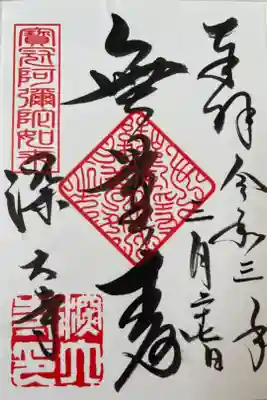 奉拝
令和三年
二月二七日
無量寿
寶冠阿彌陀如来
深大寺